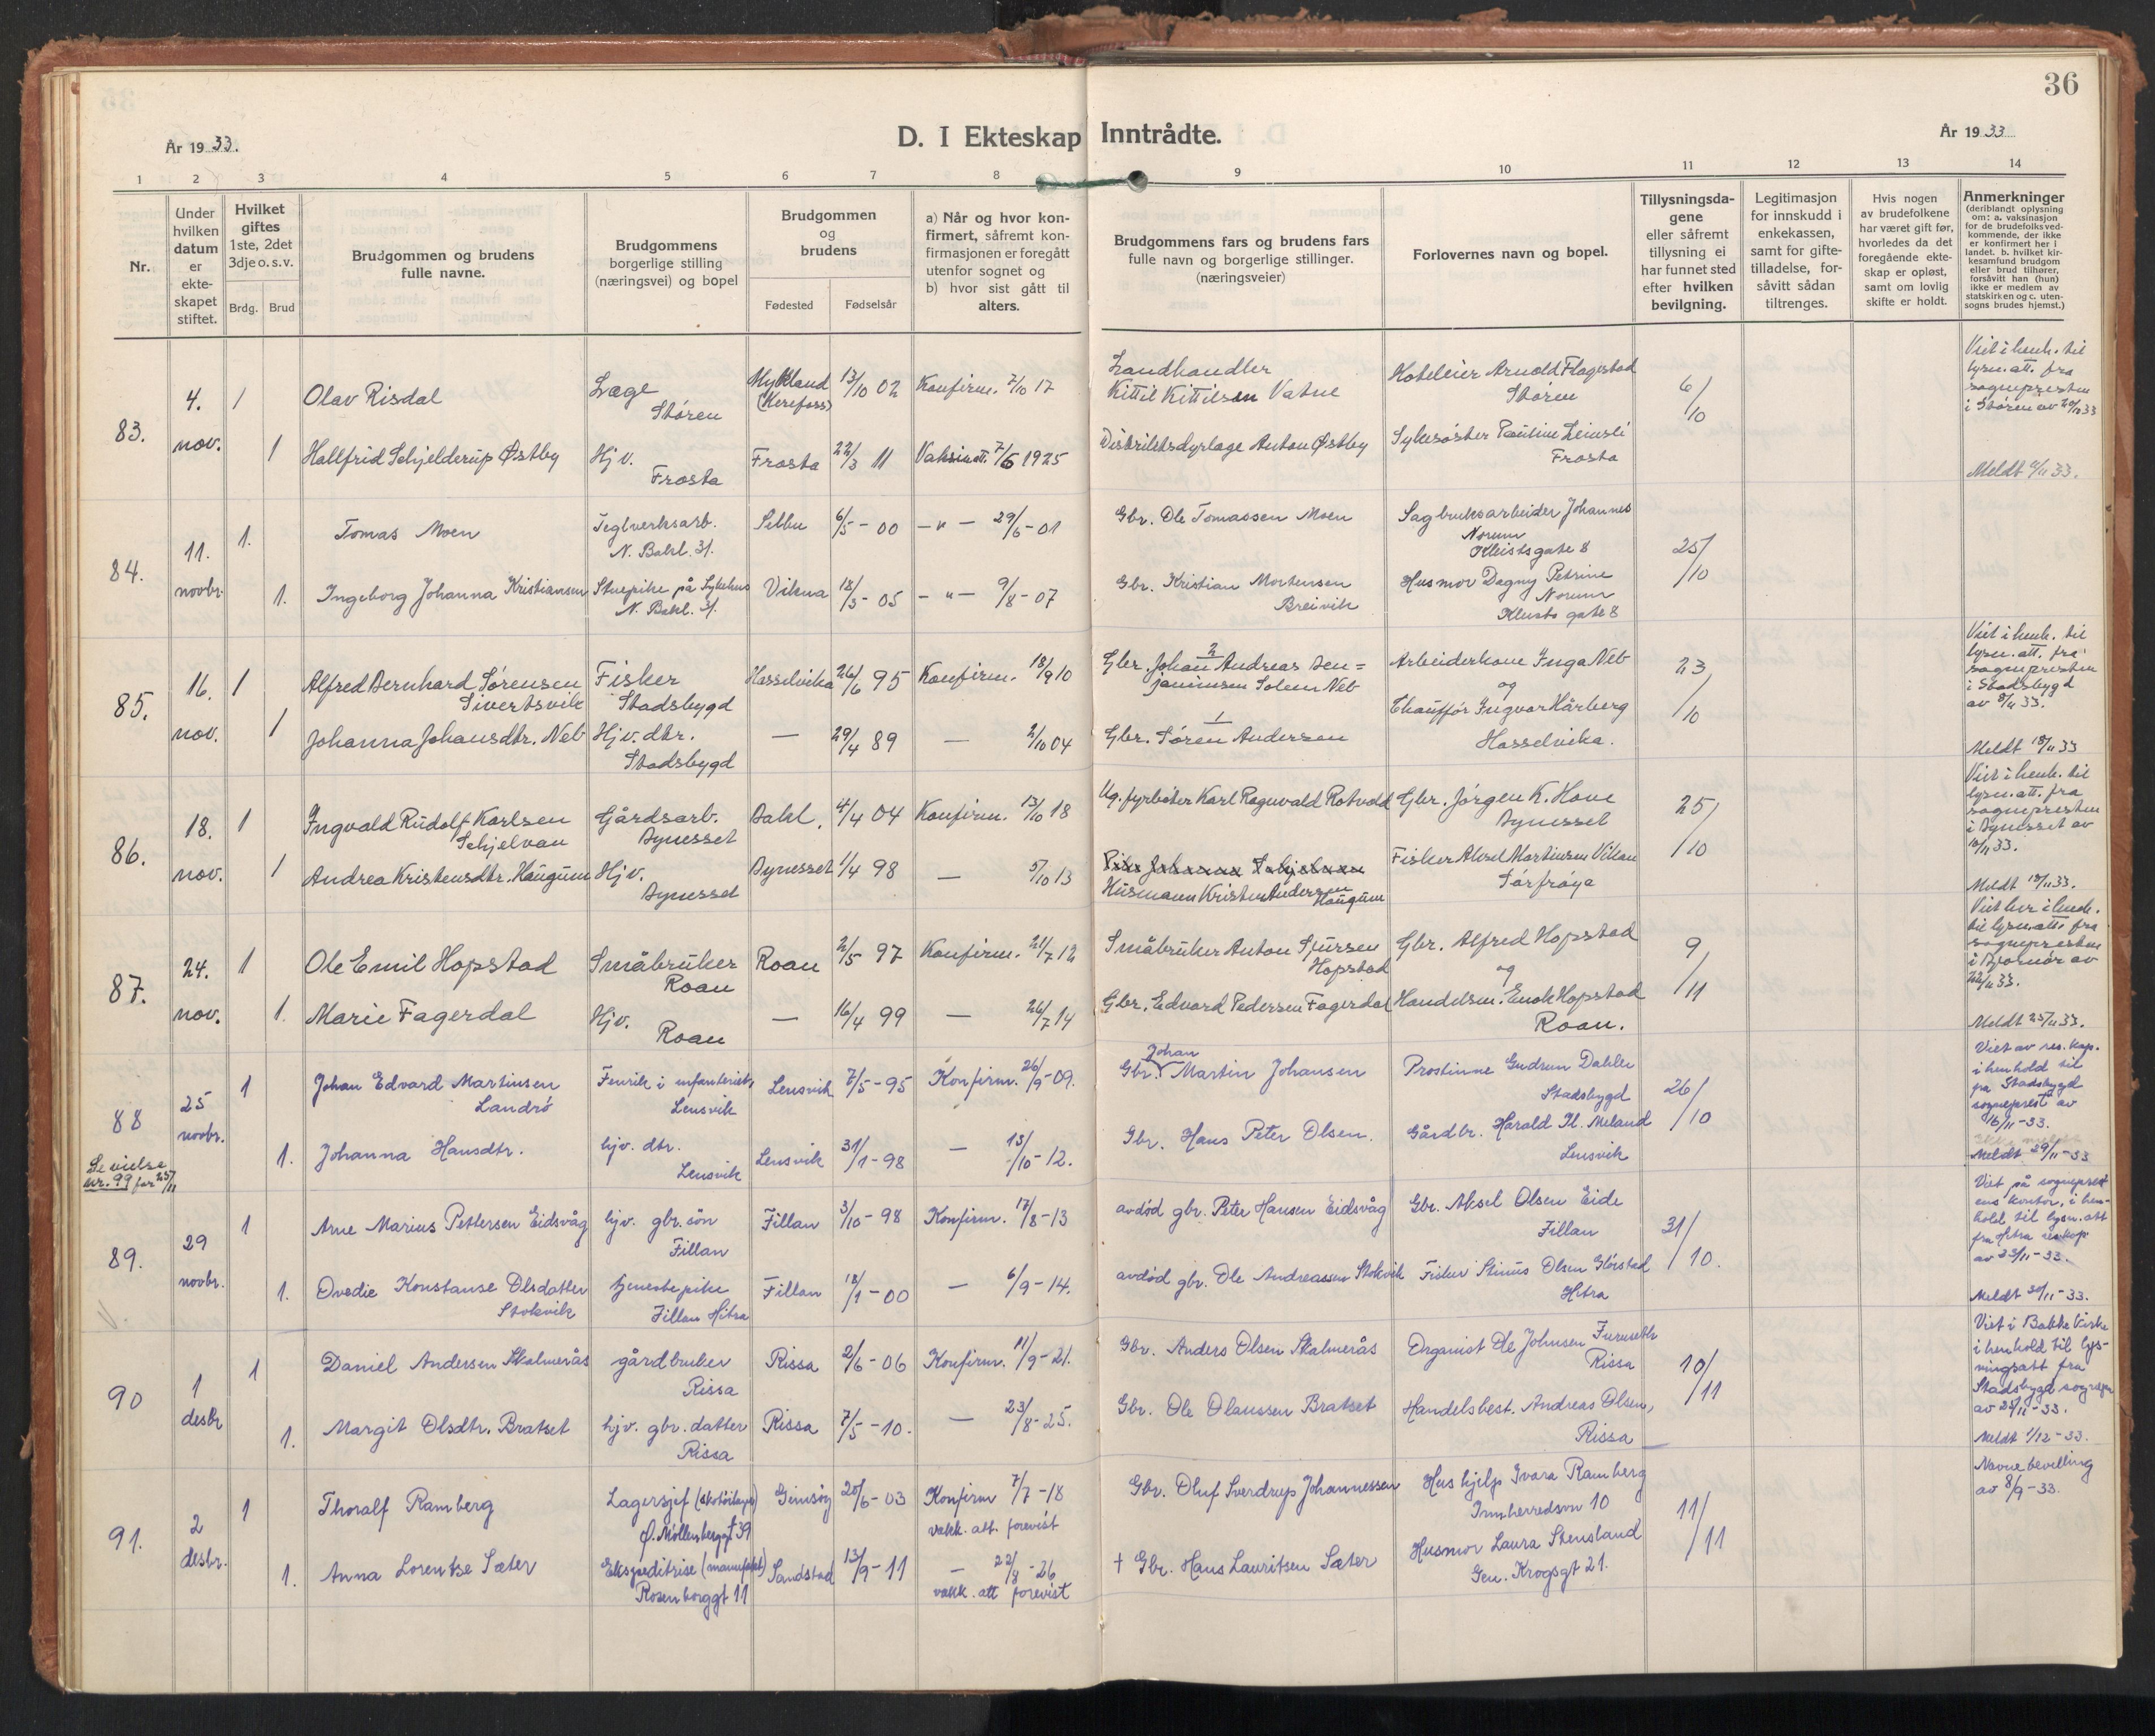 36
År 1933.
D. I Ekteskap Inntrådte.
År 1933
1 2 3 4 5 6 7 8 9 10 11 12 13 14
Nr.
Under hvilken datum er ekteskapet stiftet.
Hvilket giftes 1ste, 2det 3dje o.s.v.
Brdg. Brud
Brudgommen og brudens fulle navne.
Brudgommens borgerlige stilling (næringsvei) og bopel
Brudgommen og brudens
Fødested Fødselsår
a) Når og hvor konfirmert, såfremt konfirmasjonen er foregått utenfor sognet og b) hvor sist gått til alters.
Brudgommens fars og brudens fars fulle navn og borgerlige stillinger. (næringsveier)
Forlovernes navn og bopel.
Tillysningsdagene eller såfremt tillysning ei har funnet sted efter hvilken bevilgning.
Legitimasjon for innskudd i enkekassen, samt for giftetilladelse, forsåvitt sådan tiltrenges.
Hvis nogen av brudefolkene har været gift før, hvorledes da det foregående ekteskap er opløst, samt om lovlig skifte er holdt.
Anmerkninger (deriblandt oplysning om: a. vaksinasjon for de brudefolks vedkommende, der ikke er konfirmert her i landet. b. hvilket kirkesamfund brudgom eller brud tilhører, forsåvitt han (hun) ikke er medlem av statskirken og c. utensogns brudes hjemst.)
83. 4. nov.
1 Olav Risdal Læge Støren Mykland (Herefoss) 13/10 02 Konfirm. 7/10 17 Landhandler Kittil Kittilsen Vatne Hoteleier Arnold Flagestad Støren 6/10
Viet i henh. til lysn. att. fra sognepresten i Støren av 20/10 33
1 Hallfrid Schjelderup Østby Hjv. Frosta Frosta 22/3 11 Vaksinatt. 7/6 1925 Distriktsdyrlæge Anton Østby Sykesøster Pauline Leinsli Frosta
Meldt 6/11 33.
84. 11. novbr.
1. Tomas Moen Teglverksarb. N. Bakl. 31. Selbu 6/5-00 -"- 29/6-01 Gbr. Ole Tomassen Moen Sagbruksarbeider Johannes Norum Kleistsgate 8 25/10
1. Ingeborg Johanna Kristiansen Stuepike på Sykehus N. Bakl. 31. Vikna 18/3-05 -"- 9/8-07 Gbr. Kristian Mortensen Breivik Husmor Dagny Petrine Norum Kleists gate 8
85. 16. nov.
1 Alfred Bernhard Sørensen Sivertsvik Fisker Stadsbygd Hasselvika 26/6 95 Konfirm. 18/9 10 2 Gbr. Johan Andreas Benjaminsen Solem Neb Arbeiderkone Inga Neb og 23/10
Viet i henh. til lysn. att. fra sognepresten i Stadsbygd av 8/11 33.
1 Johanna Johansdtr. Neb Hjv. dtr. Stadsbygd — 29/4 89 — 2/10 04 1 Gbr. Søren Andersen Chauffør Ingvar Hårberg Hasselvika.
Meldt 18/11 33
86. 18. nov.
1 Ingvald Rudolf Karlsen Schjelvan Gårdsarb. Bynesset Bakl. 4/4 04 Konfirm. 13/10 18 Ug. fyrbøter Karl Ragnvald Rotvold Gbr. Jørgen K. Hove Bynesset 25/10
Viet i henh. til lysn. att. fra sognepresten i Bynesset av 10/11 33.
1 Andrea Kristensdtr. Haugum Hjv. Bynesset Bynesset 1/4 98 — 5/10 13 Pike Johanna Schjelvan Husmann Kristen Andersen Haugum Fisker Aksel Martinsen Vikan Sørfrøya
Meldt 18/11 33.
87. 24. nov.
1 Ole Emil Hopstad Småbruker Roan Roan 2/5 97 Konfirm. 21/7 12 Småbruker Anton Sjursen Hopstad Gbr. Alfred Hopstad og 9/11
Viet her i henh. til lysn. att. fra sognepresten i Bjørnør av 22/11 33.
1. Marie Fagerdal Hjv. Roan — 16/4 99 — 26/7 14 Gbr. Edvard Pedersen Fagerdal Handelsm. Enok Hopstad Roan.
Meldt 25/11 33.
88 25 novbr.
1 Johan Edvard Martinsen Landrö Fenrik i infanteriet Lensvik Lensvik 7/5-95 Konfirm. 26/9-09. Gbr. Johan Martin Johansen Prostinne Gudrun Dahle Stadsbygd 26/10
Viet av res. kap. i henhold til pa Stadsbygd sogneprest av 16/11-33.
1. Johanna Hansdtr. hjv. dtr. Lensvik Lensvik 31/1-98 — 13/10-12. Gbr. Hans Peter Olsen. Gårdbr. Harald Kl. Meland Lensvik
Meldt 29/11-33
Se vielse nr. 99 for 25/11
89. 29 novbr.
1 Arne Marius Pettersen Eidsvåg hjv. gbr. sön Fillan Fillan 3/10-98 Konfirm. 17/8-13 avdöd gbr. Peter Hansen Eidsvåg Gbr. Aksel Olsen Eide Fillan 31/10.
Viet på sogneprestens kontor, i henhold til lysn. att fra Hitra reskap. av 23/11-33.
1. Ovedie Konstanse Olsdatter Stokvik tjenestepike Fillan Hitra Fillan 12/1-00 — 6/9-14. avdöd gbr. Ole Andreassen Stokvik Fisker Stinus Olsen Glörstad Hitra
Meldt 30/11-33.
90 1 desbr
1 Daniel Andersen Skalmerås gårdbruker Rissa Rissa 2/6-06 Konfirm. 11/9-21. Gbr. Anders Olsen Skalmerås Organist Ole Johnsen Furuseth Rissa 10/11
Viet i Bakke kirke i henhold til lysningsatt fra Stadsbygd sognepr av 28/11-33.
1. Margit Olsdtr. Bratset hjv. gbr. datter Rissa Rissa 7/5-10. — 23/8-25. Gbr. Ole Olaussen Bratset Handelsbest. Andreas Olsen, Rissa
Meldt 1/12-33.
91. 2 desbr.
1 Thoralf Ramberg Lagersjef (skotöilager) Ø. Möllenberggt 39 Gimsöy 20/6-03 Konfirm 7/7-18 vakk. att. forevist Gbr. Oluf Sverdrup Johannessen Hushjelp Ivara Ramberg Innherredsvn 10 11/11
Navnebevilling av 8/9-33.
1. Anna Lorentse Sæter Ekspeditrise (manufakt) Rosenborggt 11 Sandstad 13/9-11 — 22/8-26 vakk. att forevist † Gbr. Hans Lauritsen Sæter Husmor Laura Stensland Gen. Krogsgt 21.